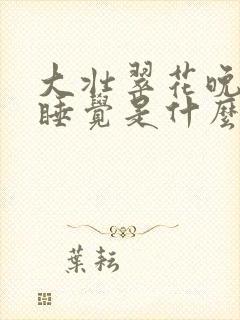 大壯翠花晚
睡覺是什麼
葉耘